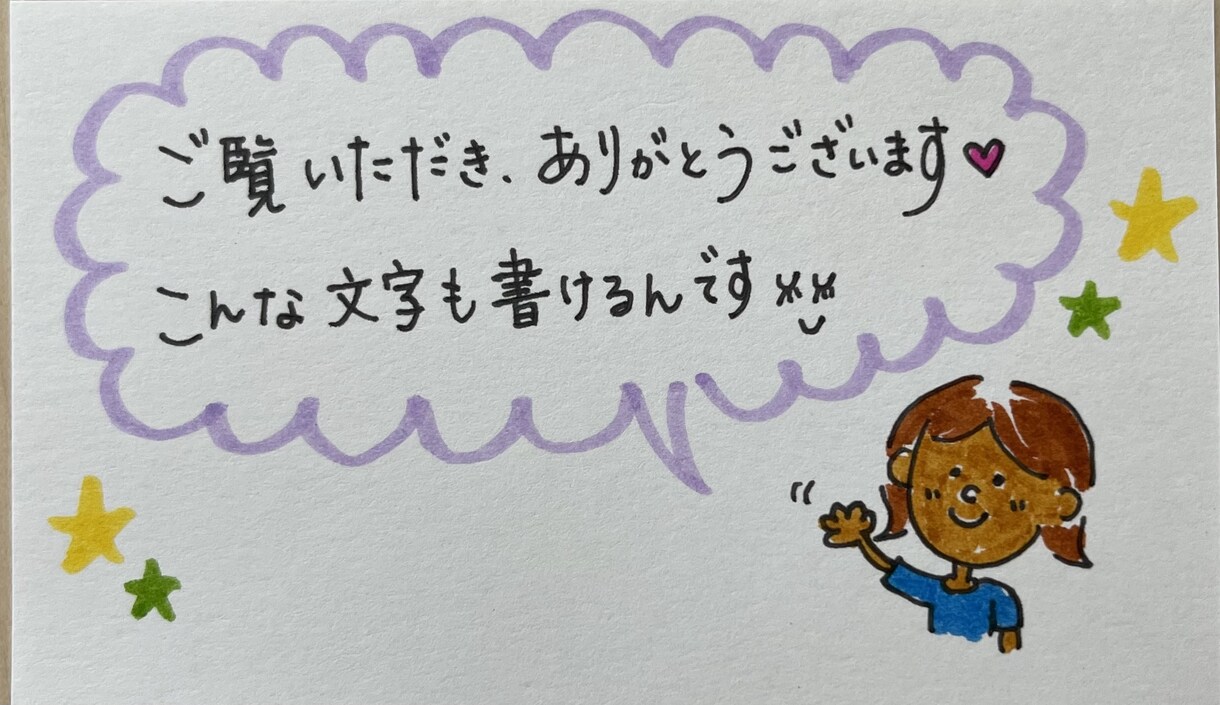 ご覧いただき、ありがとうございます♥
こんな文字も書けるんです